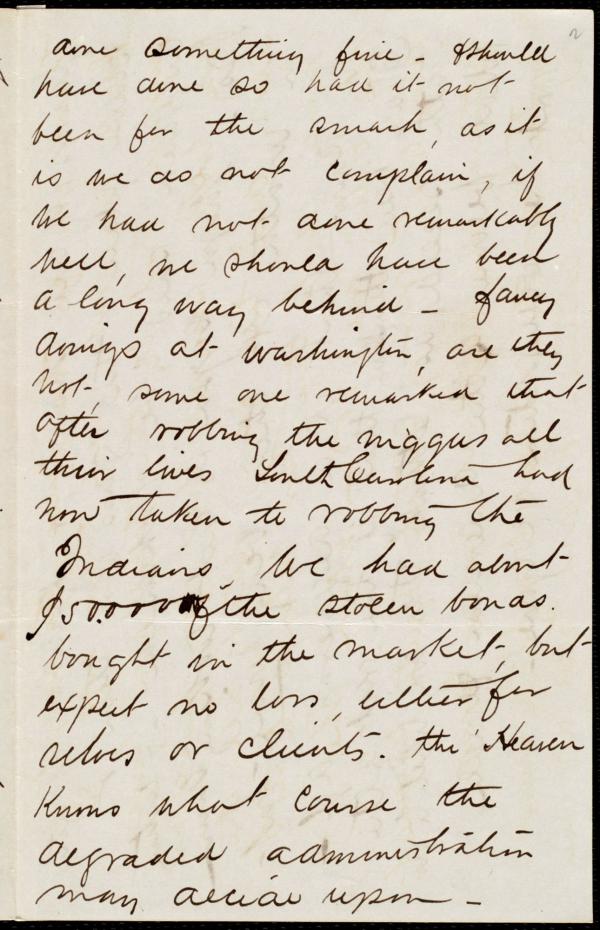 2
done something fine - & should
have done so had it not
been for the smash, as it
is we do not complain, if
we had not done remarkably
well, we should have been
a long way behind - fancy
doings at Washington, are they
not, some one remarked that
after robbing the niggers all
their lives South Carolina had
now taken to robbing the
Indians, We had about
$50.000 of the stolen bonds.
bought in the market, but
expect no loss, either for
selves or clients. tho' Heaven
Knows what course the
degraded administration
may decide upon -